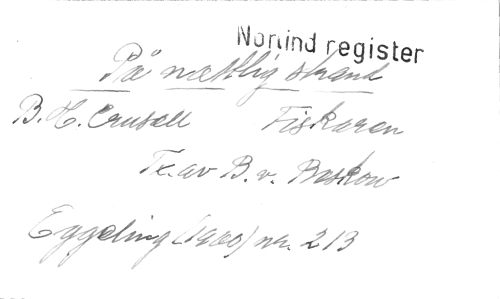 Norlind register
På nattlig strand
B. H. Crusell Fiskaren
Tx. av B. v. Beskow
Eggeling (1900) nr. 213